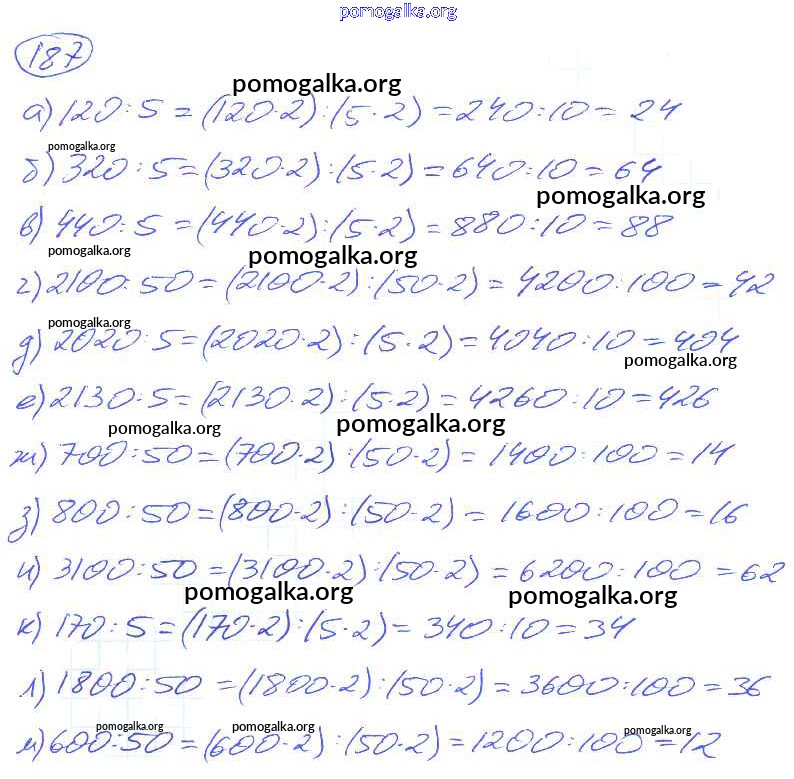 pomogalka.org
187
pomogalka.org
а) 120 : 5 = (120·2) : (5·2) = 240 : 10 = 24
pomogalka.org
б) 320 : 5 = (320·2) : (5·2) = 640 : 10 = 64
pomogalka.org
в) 440 : 5 = (440·2) : (5·2) = 880 : 10 = 88
pomogalka.org
pomogalka.org
г) 2100 : 50 = (2100·2) : (50·2) = 4200 : 100 = 42
pomogalka.org
д) 2020 : 5 = (2020·2) : (5·2) = 4040 : 10 = 404
pomogalka.org
е) 2130 : 5 = (2130·2) : (5·2) = 4260 : 10 = 426
pomogalka.org pomogalka.org
ж) 700 : 50 = (700·2) : (50·2) = 1400 : 100 = 14
з) 800 : 50 = (800·2) : (50·2) = 1600 : 100 = 16
и) 3100 : 50 = (3100·2) : (50·2) = 6200 : 100 = 62
pomogalka.org pomogalka.org
к) 170 : 5 = (170·2) : (5·2) = 340 : 10 = 34
л) 1800 : 50 = (1800·2) : (50·2) = 3600 : 100 = 36
pomogalka.org pomogalka.org pomogalka.org
м) 600 : 50 = (600·2) : (50·2) = 1200 : 100 = 12